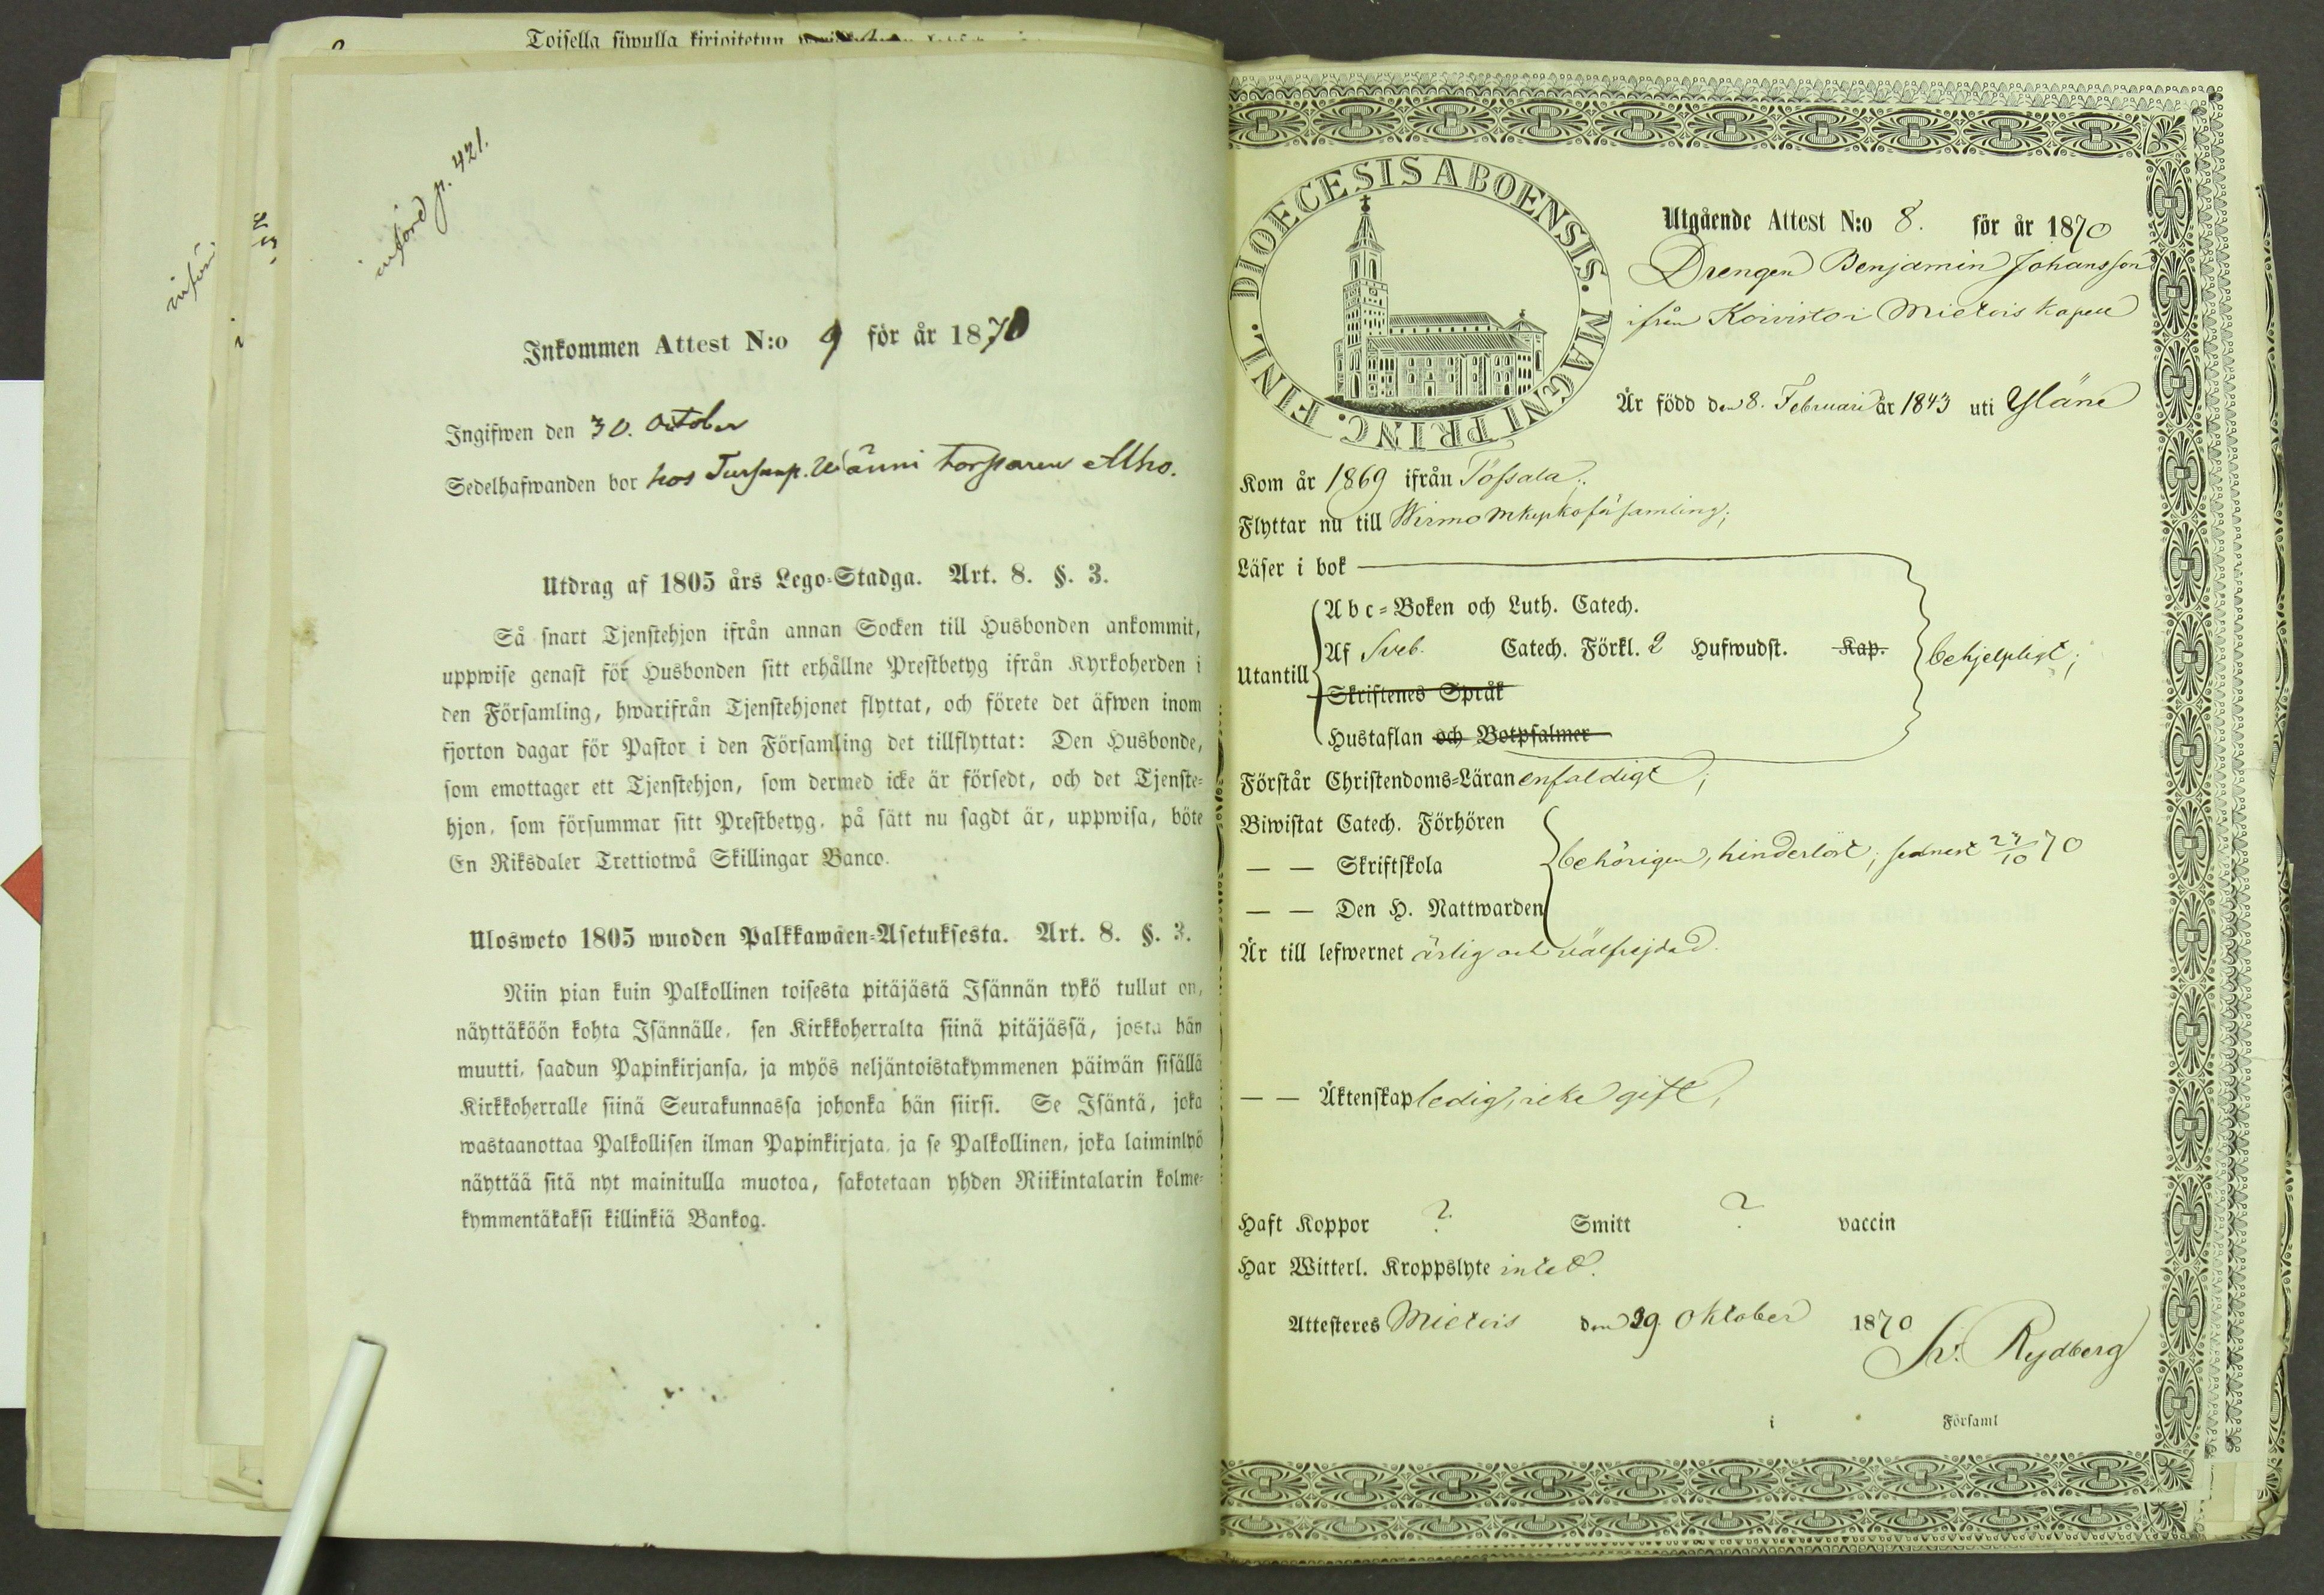 Toisella siwulla kirjoitetun
införd p. 421.
införd
Inkommen Attest N:o 9 för år 1870
Ingifwen den 30. October
Sedelhafwanden bor hos Torparen Alho.
Utdrag af 1805 års Lego-Stadga. Art. 8. §. 3.
Så snart Tjenstehjon ifrån annan Socken till Husbonden ankommit,
uppwise genast för Husbonden sitt erhållne Prestbetyg ifrån Kyrkoherden i
den Församling, hwarifrån Tjenstehjonet flyttat, och förete det äfwen inom
fjorton dagar för Pastor i den Församling det tillflyttat: Den Husbonde,
som emottager ett Tjenstehjon, som dermed icke är försedt, och det Tjenste-
hjon, som försummar sitt Prestbetyg, på sätt nu sagdt är, uppwisa, böte
En Riksdaler Trettiotwå Skillingar Banco.
Ulosweto 1805 wuoden Palkkawäen-Asetuksesta. Art. 8. §. 3.
Niin pian kuin Palkollinen toisesta pitäjästä Isännän tykö tullut on,
näyttäköön kohta Isännälle, sen Kirkkoherralta siinä pitäjässä, josta hän
muutti, saadun Papinkirjansa, ja myös neljäntoistakymmenen päiwän sisällä
Kirkkoherralle siinä Seurakunnassa johonka hän siirsi. Se Isäntä, joka
wastaanottaa Palkollisen ilman Papinkirjata, ja se Palkollinen, joka laiminlyö
näyttää sitä nyt mainitulla muotoa, sakotetaan yhden Riikintalarin kolme-
kymmentäkaksi killinkiä Bankog.
DIOECESIS ABOENSIS. MAGNI PRINC. FINL.
Utgående Attest N:o 8. för år 1870
Drengen Benjamin Johansson
ifrån Koivisto i Mietois kapell
Är född den 8. Februari år 1843 uti Yläne
Kom år 1869 ifrån Töfsala;
Flyttar nu till Wirmo mkyrkoförsamling;
Läser i bok
Abc-Boken och Luth. Catech.
Utantill Af Sveb. Catech. Förkl. 2 Hufwudst. Kap. behjelpligt;
Skriftenes Språk
Hustaflan och Botpsalmer
Förstår Christendoms-Läran enfaldigt;
Biwistat Catech. Förhören
— — Skriftskola behörigen, hinderlöst; sednast 23/10 70
— — Den H. Nattwarden
Är till lefwernet ärlig och välfrejdad.
— — Äktenskap ledig, icke gift,
Haft Koppor ? Smitt ? vaccin
Har Witterl. Kroppslyte intet.
Attesteres Mietois den 29. Oktober 1870
Fr. Rydberg
i Församl